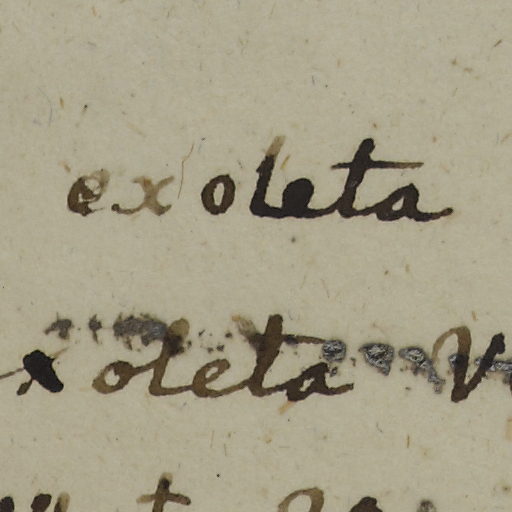 exoleta
xoleta V